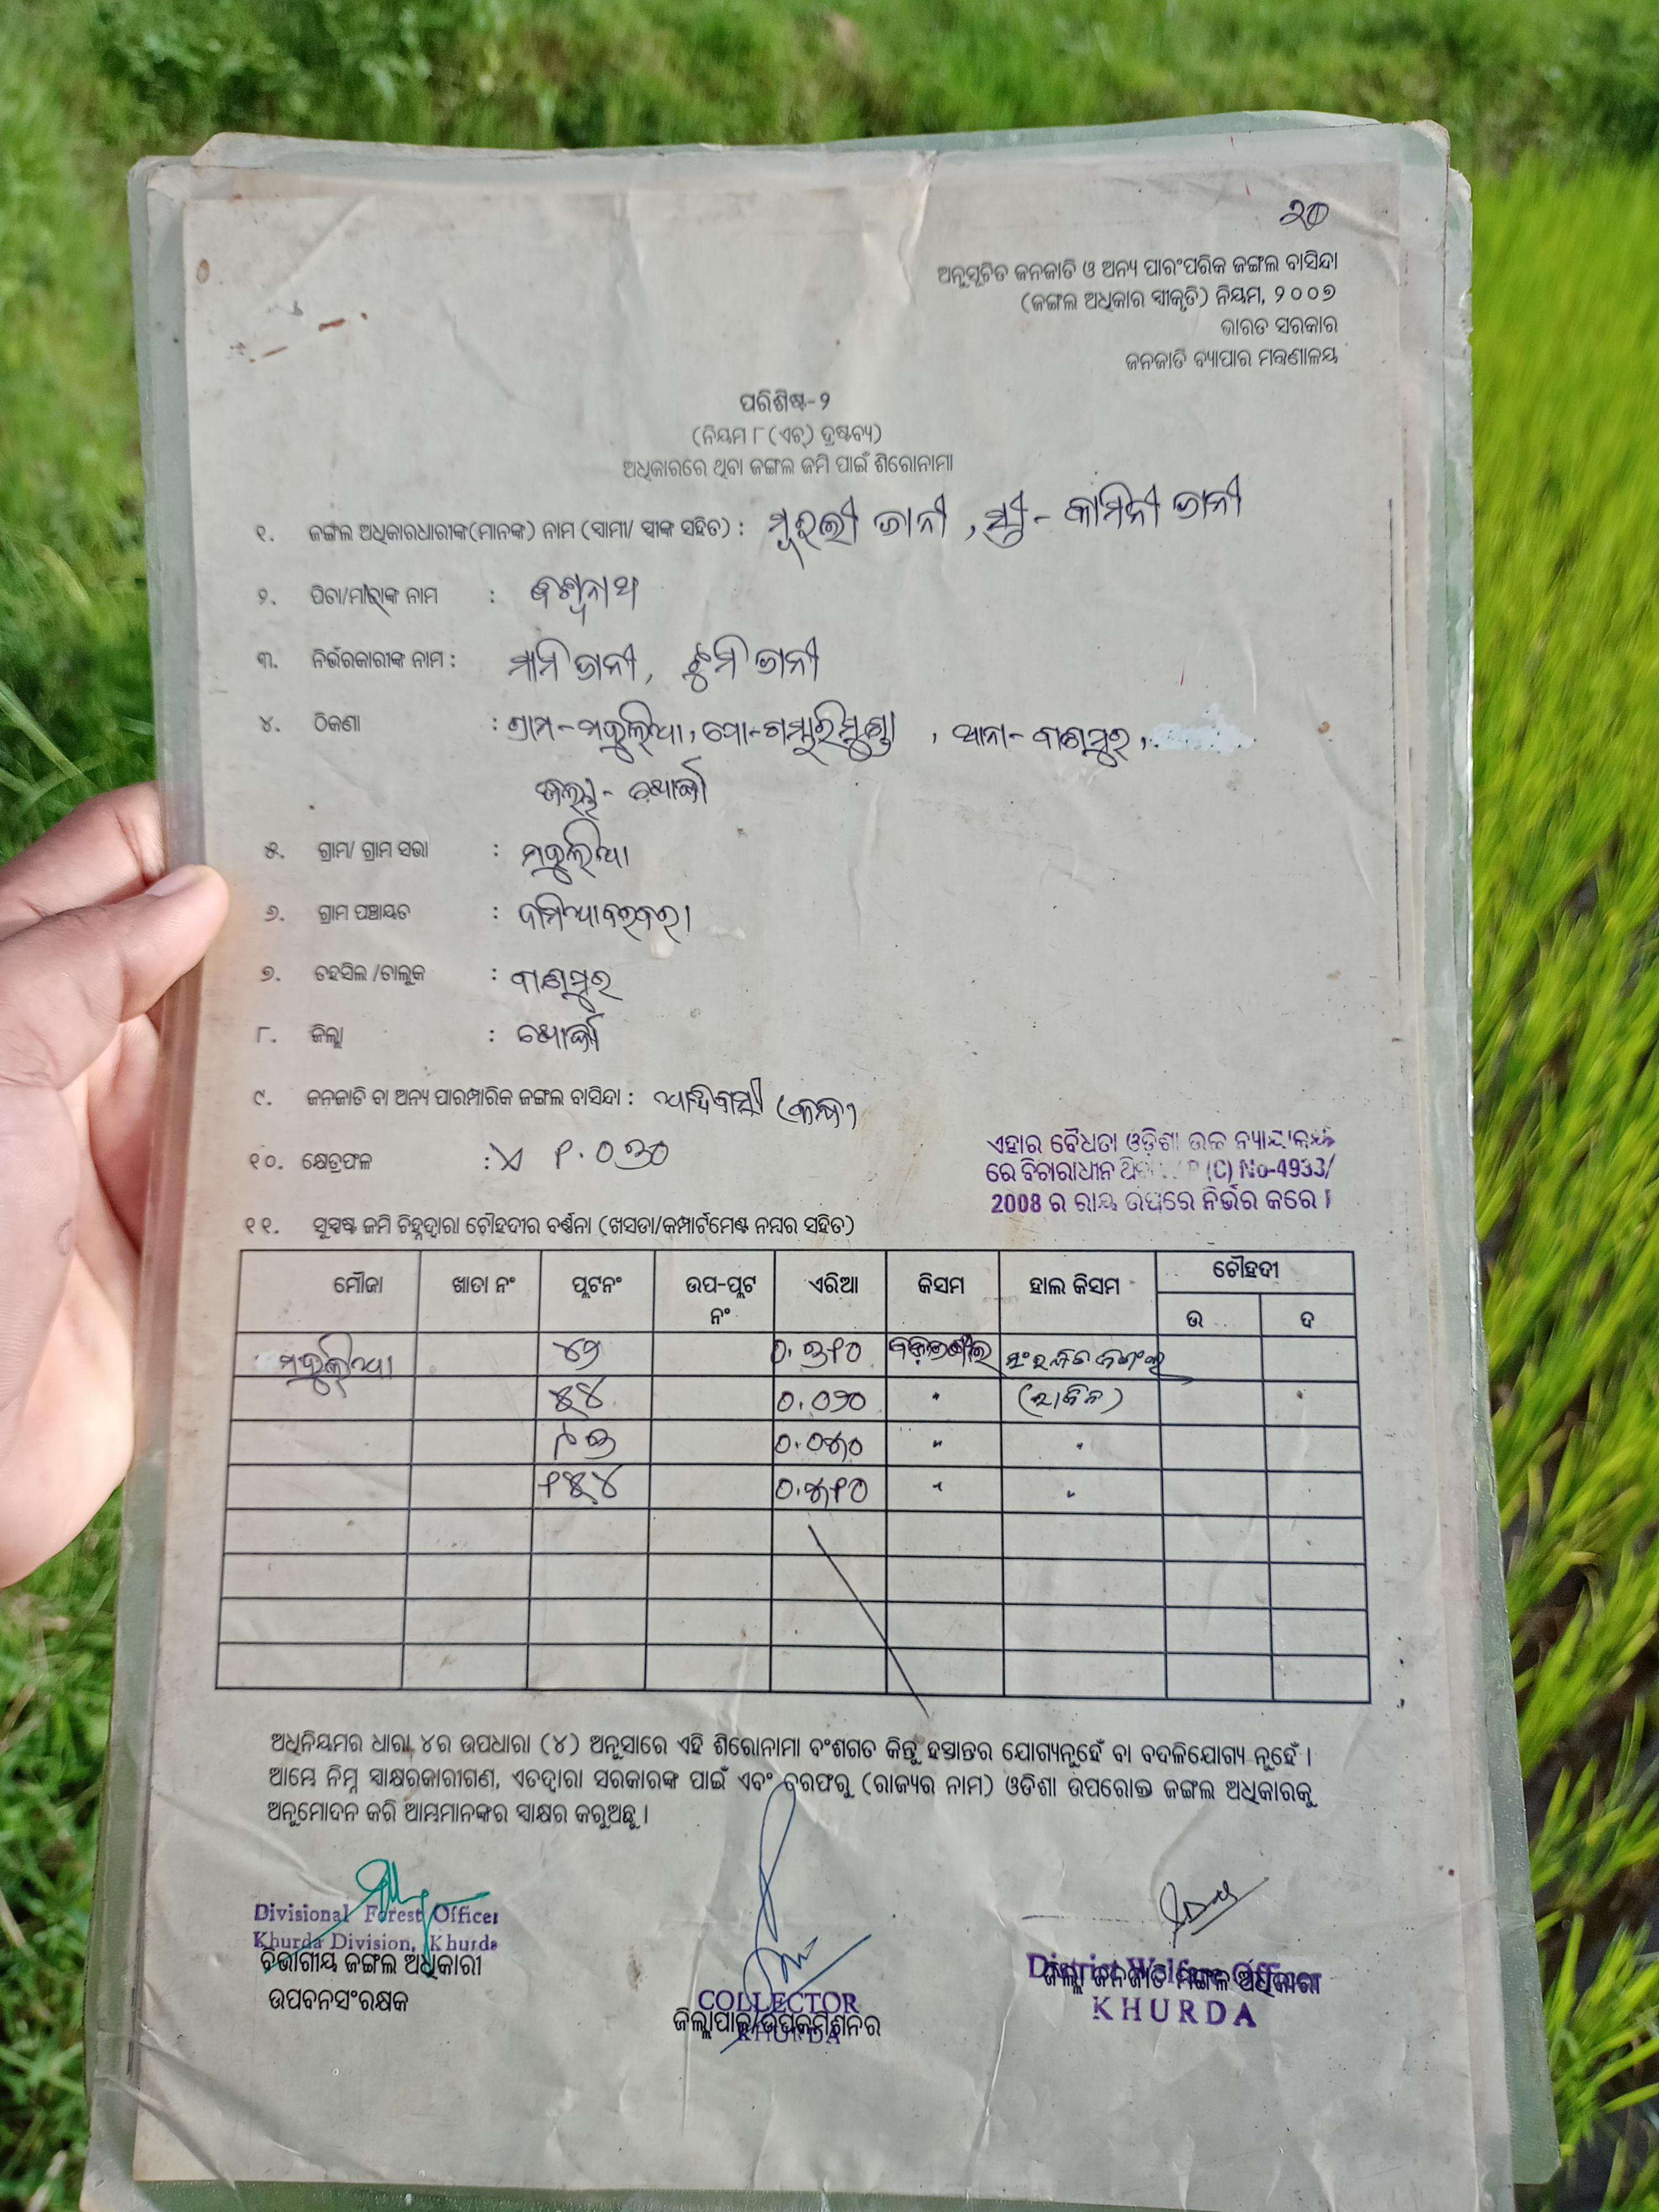 ୨୦
ଅନୁସୂଚିତ ଜନଜାତି ଓ ଅନ୍ୟ ପାରଂପରିକ ଜଙ୍ଗଲ ବାସିନ୍ଦା
(ଜଙ୍ଗଲ ଅଧିକାର ସ୍ୱୀକୃତି) ନିୟମ, ୨୦୦୭
ଭାରତ ସରକାର
ଜନଜାତି ବ୍ୟାପାର ମନ୍ତ୍ରଣାଳୟ
ପରିଶିଷ୍ଟ-୨
(ନିୟମ ୮(ଏଚ୍) ଦ୍ରଷ୍ଟବ୍ୟ)
ଅଧିକାରରେ ଥିବା ଜଙ୍ଗଲ ଜମି ପାଇଁ ଶିରୋନାମା
୧. ଜଙ୍ଗଲ ଅଧିକାରଧାରୀଙ୍କ(ମାନଙ୍କ) ନାମ (ସ୍ୱାମୀ/ ସ୍ତ୍ରୀଙ୍କ ସହିତ) : ମୂରଲୀ ଭାନୀ, ସ୍ତ୍ରୀ- କାମିନୀ ଭାନୀ
୨. ପିତା/ମାତାଙ୍କ ନାମ :
୩. ନିର୍ଭରକାରୀଙ୍କ ନାମ : ମାମି ଭାନୀ, ଟୁମି ଭାନୀ
୪. ଠିକଣା : ଗ୍ରାମ-, ପୋ-, ଥାନା- ବାଣପୁର,
ଜିଲ୍ଲା- ଖୋର୍ଦ୍ଧା
୫. ଗ୍ରାମ/ ଗ୍ରାମ ସଭା :
୬. ଗ୍ରାମ ପଞ୍ଚାୟତ :
୭. ତହସିଲ /ତାଲୁକ : ବାଣପୁର
୮. ଜିଲ୍ଲା : ଖୋର୍ଦ୍ଧା
୯. ଜନଜାତି ବା ଅନ୍ୟ ପାରମ୍ପାରିକ ଜଙ୍ଗଲ ବାସିନ୍ଦା : ଆଦିବାସୀ (କନ୍ଧ)
୧୦. କ୍ଷେତ୍ରଫଳ : ୧.୦୩୦
ଏହାର ବୈଧତା ଓଡ଼ିଶା ଉଚ୍ଚ ନ୍ୟାୟାଳୟ
ରେ ବିଚାରାଧୀନ (C) No-4933/
2008 ର ରାୟ ଉପରେ ନିର୍ଭର କରେ ।
୧୧. ସୁସ୍ପଷ୍ଟ ଜମି ଚିହ୍ନଦ୍ୱାରା ଚୌହଦୀର ବର୍ଣ୍ଣନା (ଖସଡା/କମ୍ପାର୍ଟମେଣ୍ଟ ନମ୍ବର ସହିତ)
ମୌଜା ଖାତା ନଂ ପ୍ଲଟନଂ ଉପ-ପ୍ଲଟ ନଂ ଏରିଆ କିସମ ହାଲ କିସମ ଚୌହଦୀ
ଉ ଦ
୪୨ ୦.୩୧୦
୫୪ ୦.୦୨୦ "
୯୩ ୦.୦୬୦ " "
୧୫୪ ୦.୬୧୦ " "
ଅଧିନିୟମର ଧାରା ୪ର ଉପଧାରା (୪) ଅନୁସାରେ ଏହି ଶିରୋନାମା ବଂଶଗତ କିନ୍ତୁ ହସ୍ତାନ୍ତର ଯୋଗ୍ୟନୁହେଁ ବା ବଦଳିଯୋଗ୍ୟ ନୁହେଁ ।
ଆମ୍ଭେ ନିମ୍ନ ସ୍ୱାକ୍ଷରକାରୀଗଣ, ଏତଦ୍ୱାରା ସରକାରଙ୍କ ପାଇଁ ଏବଂ ତରଫରୁ (ରାଜ୍ୟର ନାମ) ଓଡିଶା ଉପରୋକ୍ତ ଜଙ୍ଗଲ ଅଧିକାରକୁ
ଅନୁମୋଦନ କରି ଆମ୍ଭମାନଙ୍କର ସ୍ୱାକ୍ଷର କରୁଅଛୁ ।
Divisional Forest Officer
Khurda Division, Khurda
ବିଭାଗୀୟ ଜଙ୍ଗଲ ଅଧିକାରୀ
ଉପବନସଂରକ୍ଷକ
COLLECTOR
ଜିଲ୍ଲାପାଳ/ଉପକମିଶନର
KHURDA
District Welfare Officer
ଜିଲ୍ଲା ଜନଜାତି ମଙ୍ଗଳ ଅଧିକାରୀ
KHURDA